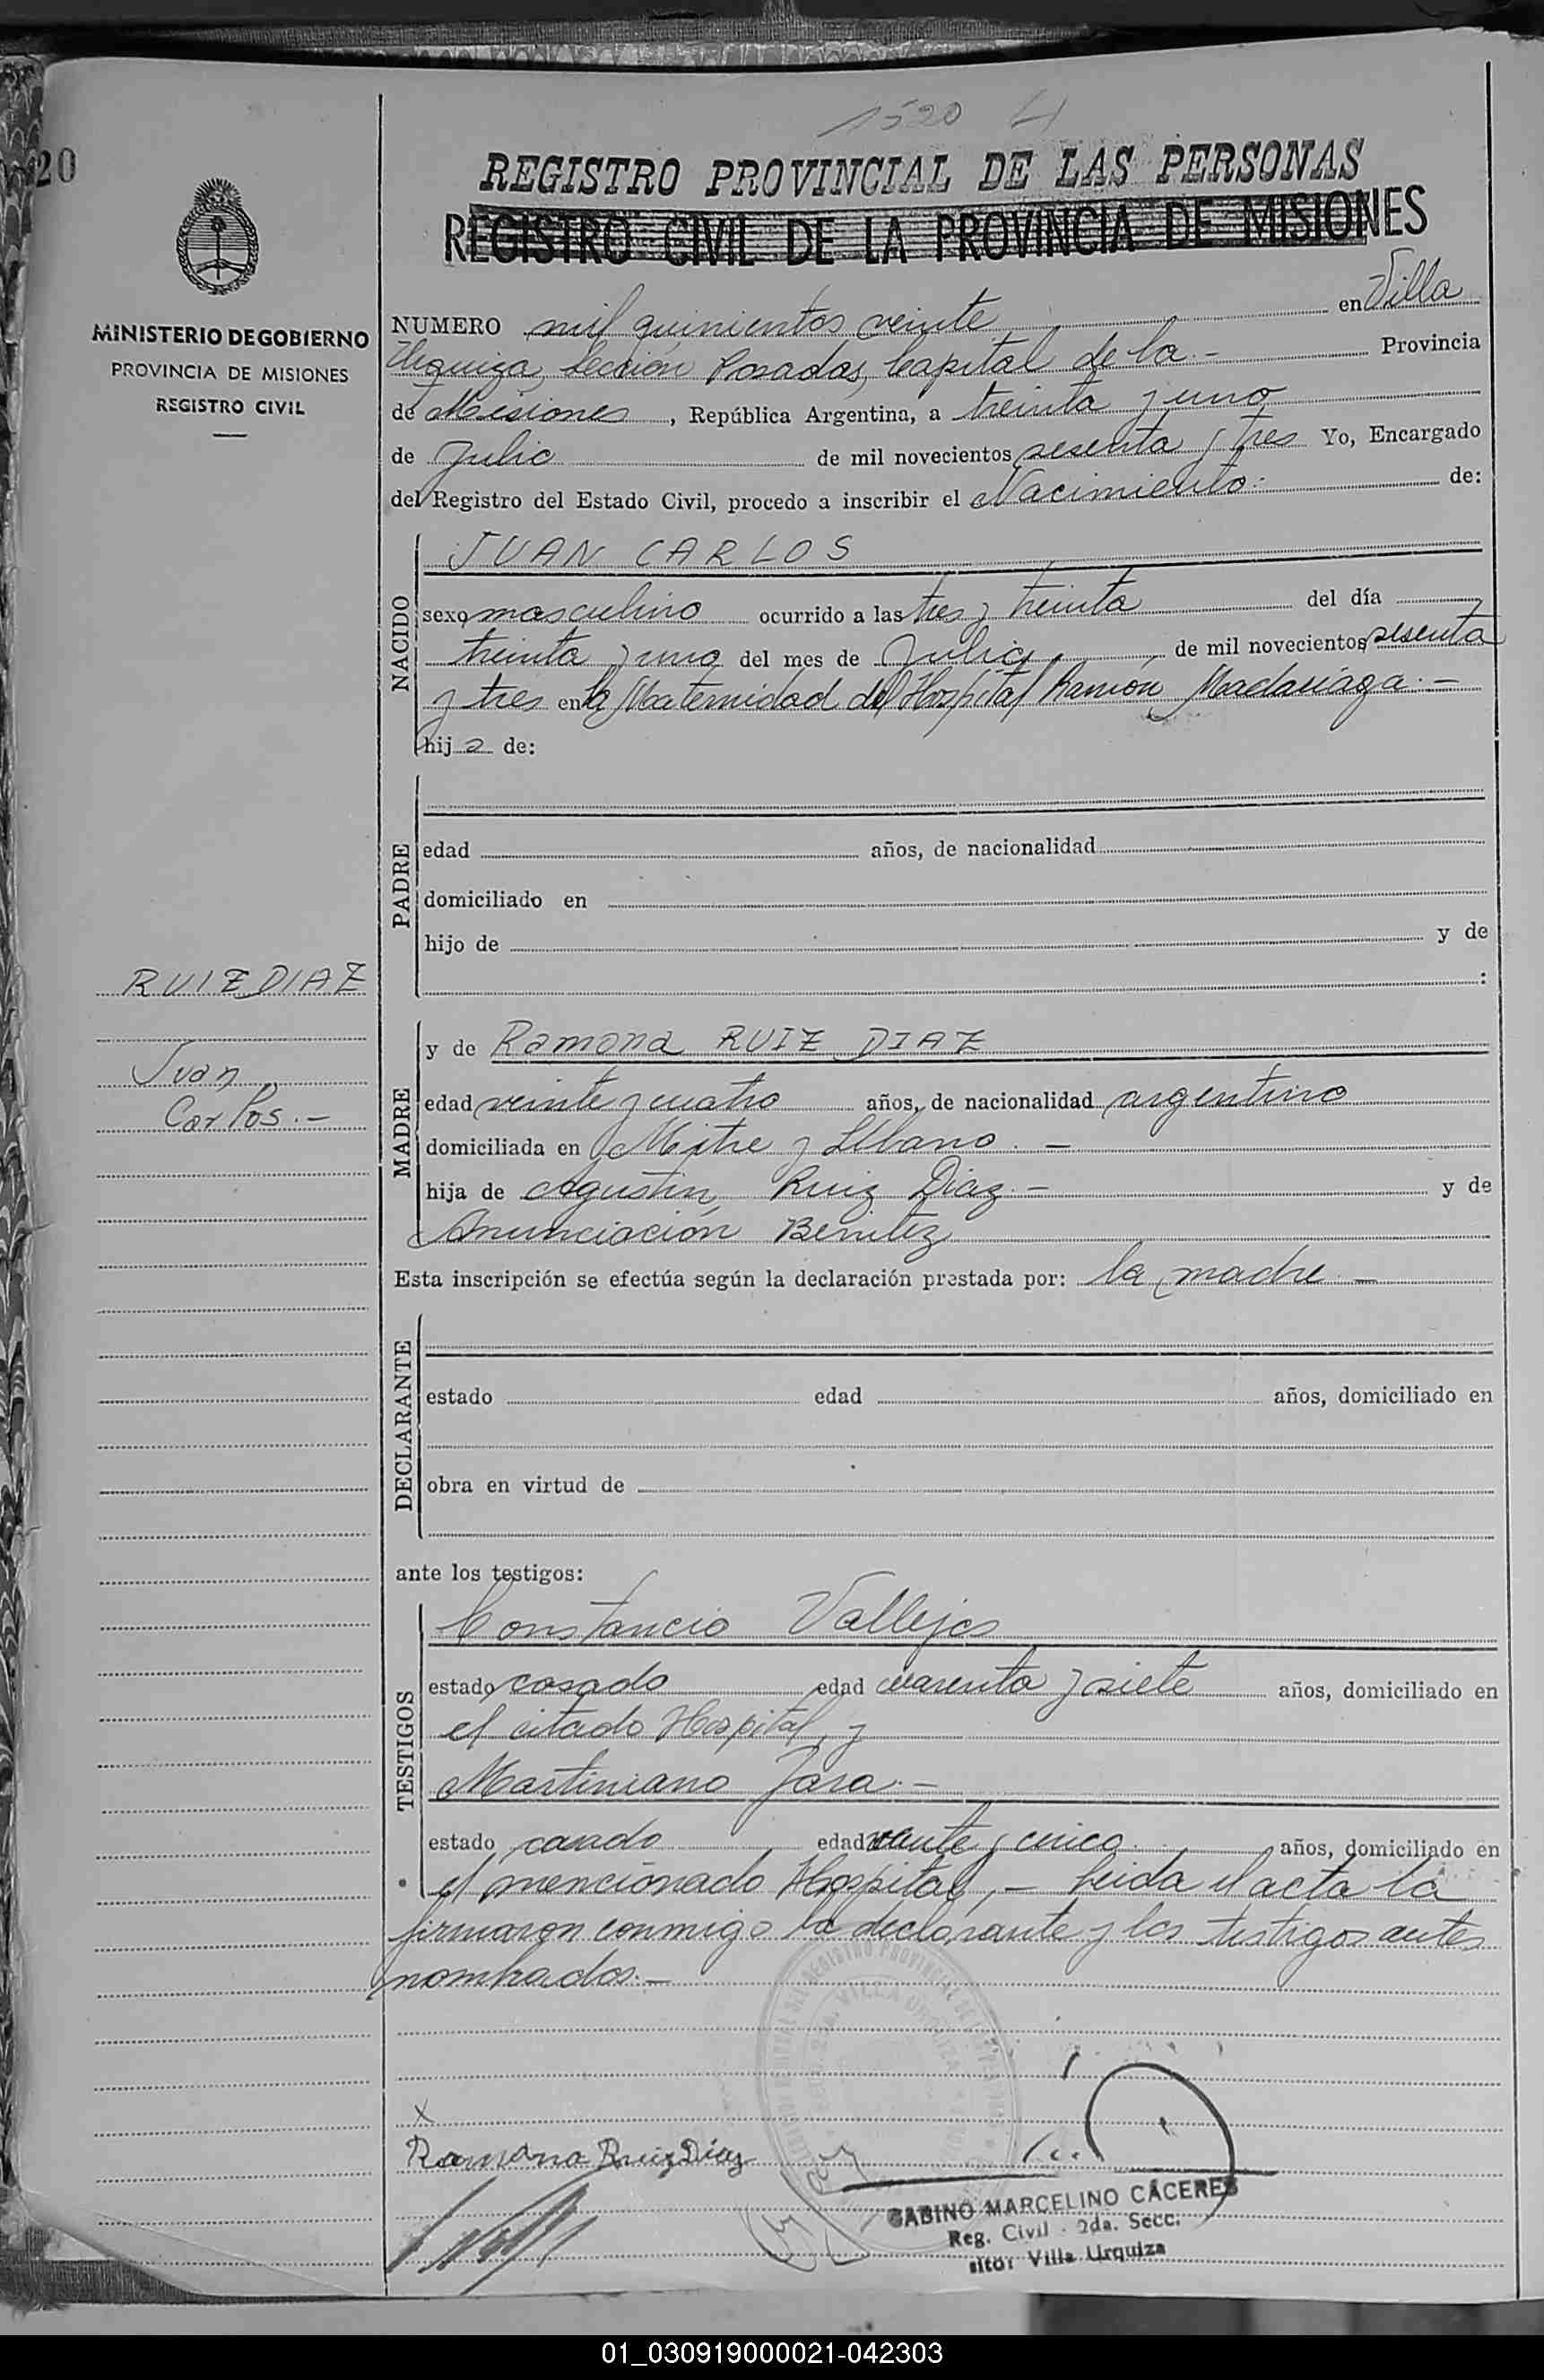 1520
20
REGISTRO PROVINCIAL DE LAS PERSONAS
REGISTRO CIVIL DE LA PROVINCIA DE MISIONES
MINISTERIO DE GOBIERNO
PROVINCIA DE MISIONES
REGISTRO CIVIL
NUMERO mil quinientos veinte en Villa
Urquiza, Sección Posadas, Capital de la.- Provincia
de Misiones, República Argentina, a treinta y uno
de Julio de mil novecientos sesenta y tres Yo, Encargado
del Registro del Estado Civil, procedo a inscribir el Nacimiento.- de:
NACIDO
JUAN CARLOS
sexo masculino ocurrido a las tres y treinta del día
treinta y uno del mes de Julio, de mil novecientos sesenta
y tres en la Maternidad del Hospital Ramón Madariaga.-
hij o de:
PADRE
edad años, de nacionalidad
domiciliado en
hijo de y de
:
RUIZ DIAZ
Juan
Carlos.-
MADRE
y de Ramona RUIZ DIAZ
edad veinte y cuatro años, de nacionalidad argentino
domiciliada en Mitre y Líbano.-
hija de Agustin Ruiz Diaz.- y de
Anunciación Benitez
Esta inscripción se efectúa según la declaración prestada por: la madre.-
DECLARANTE
estado edad años, domiciliado en
obra en virtud de
ante los testigos:
TESTIGOS
Constancio Vallejos
estado casado edad cuarenta y siete años, domiciliado en
el citado Hospital, y
Martiniano Jara.-
estado casado edad veinte y cinco años, domiciliado en
el mencionado Hospital,- Leida el acta la
firmaron conmigo la declarante y los testigos antes
nombrados.-
x
Ramona Ruiz Díaz
GABINO MARCELINO CÁCERES
Reg. Civil - 2da. Secc.
Villa Urquiza
01_030919000021-042303